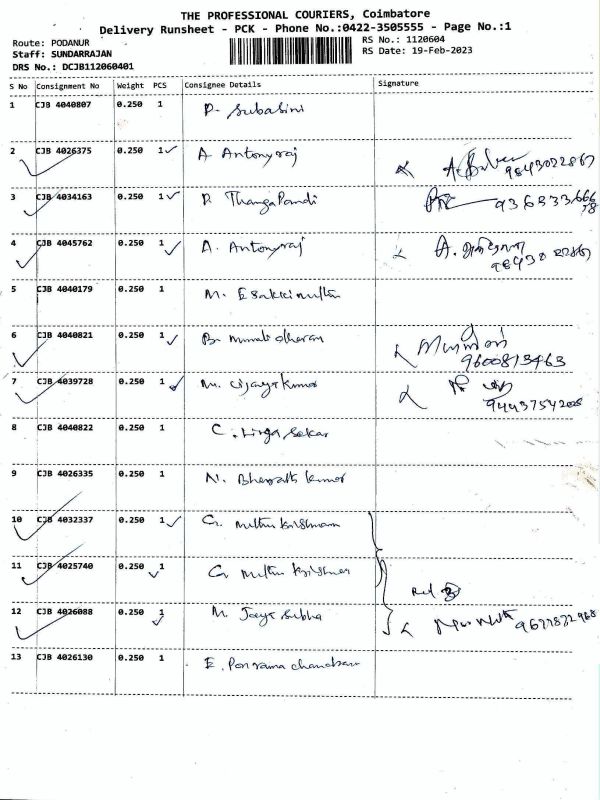 THE PROFESSIONAL COURIERS, Coimbatore
Delivery Runsheet - PCK - Phone No.:0422-3505555 - Page No.:1
Route: PODANUR
RS No.: 1120604
Staff: SUNDARRAJAN
RS Date: 19-Feb-2023
DRS No.: DCJB112060401
S No Consignment No Weight PCS Consignee Details Signature
1 CJB 4040807 0.250 1 P. Subasini
2 CJB 4026375 0.250 1 A. Antonyraj
3 CJB 4034163 0.250 1 P. ThangaPandi
4 CJB 4045762 0.250 1 A. Antonyraj
5 CJB 4040179 0.250 1 M. Esakkimuthu
6 CJB 4040821 0.250 1 B. 9600813463
7 CJB 4039728 0.250 1 M. Vijayakumar
8 CJB 4040822 0.250 1 C. Linga Sekar
9 CJB 4026335 0.250 1 N. Bharath Kumar
10 CJB 4032337 0.250 1 G. Muthu Krishnan
11 CJB 4025740 0.250 1 G. Muthu Krishnan
12 CJB 4026088 0.250 1 M. Jaya Subha
13 CJB 4026130 0.250 1 E. Ponrama chandran